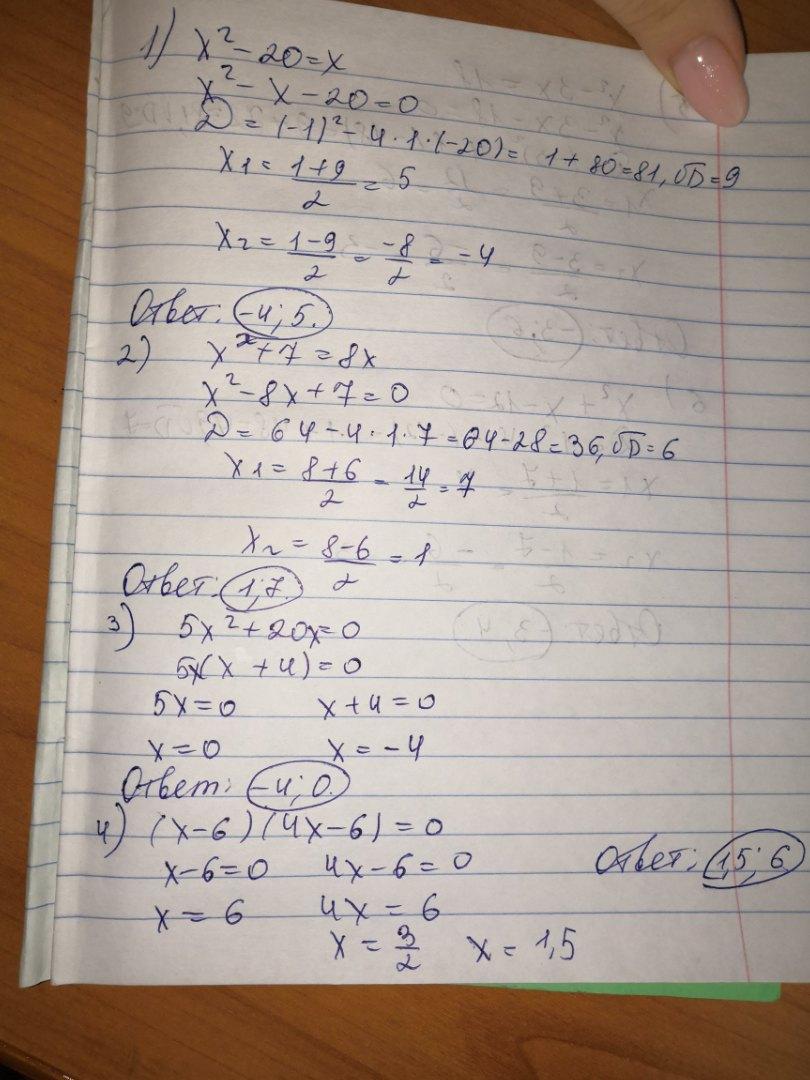 1) x² - 20 = x
x² - x - 20 = 0
D = (-1)² - 4·1·(-20) = 1 + 80 = 81, √D = 9
x₁ = (1+9)/2 = 5
x₂ = (1-9)/2 = -8/2 = -4
Ответ: -4; 5.
2) x² + 7 = 8x
x² - 8x + 7 = 0
D = 64 - 4·1·7 = 64 - 28 = 36, √D = 6
x₁ = (8+6)/2 = 14/2 = 7
x₂ = (8-6)/2 = 1
Ответ: 1; 7.
3) 5x² + 20x = 0
5x(x + 4) = 0
5x = 0 x + 4 = 0
x = 0 x = -4
Ответ: -4; 0.
4) (x-6)(4x-6) = 0
x-6 = 0 4x-6 = 0
x = 6 4x = 6
x = 3/2 x = 1,5
Ответ: 1,5; 6